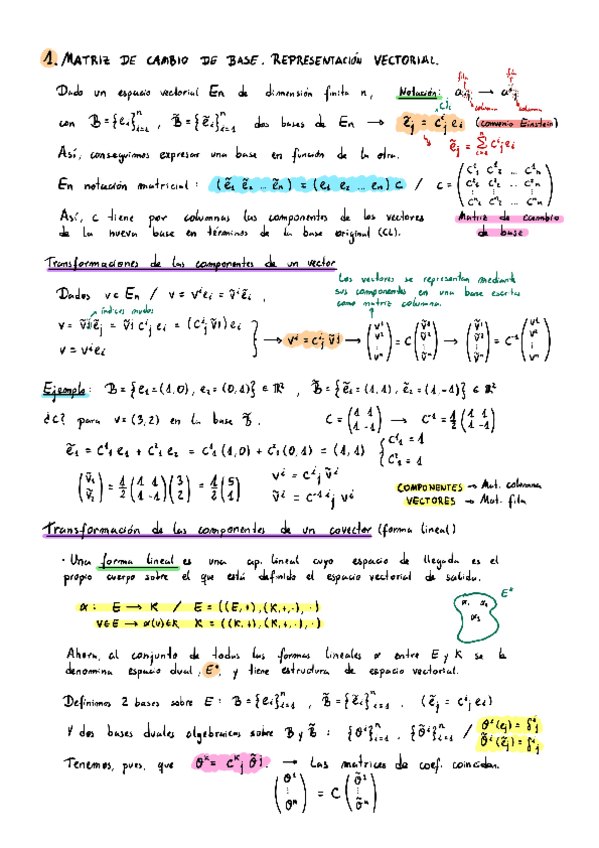 1. MATRIZ DE CAMBIO DE BASE. REPRESENTACIÓN VECTORIAL.
Dado un espacio vectorial En de dimensión finita n, Notación: aᵢⱼ → aⁱⱼ
fila columna fila columna
con B={eᵢ}ⁿᵢ₌₁, B̃={ẽᵢ}ⁿᵢ₌₁ dos bases de En → ẽⱼ = cⁱⱼ eᵢ (convenio Einstein)
CL
ẽⱼ = Σⁿᵢ₌₁ cⁱⱼ eᵢ
Así, conseguimos expresar una base en función de la otra.
En notación matricial: (ẽ₁ ẽ₂ ... ẽn) = (e₁ e₂ ... en) C / C = (C¹₁ C¹₂ ... C¹n
C²₁ C²₂ ... C²n
⋮ ⋮ ⋮
Cⁿ₁ Cⁿ₂ ... Cⁿn)
Así, C tiene por columnas las componentes de los vectores
de la nueva base en términos de la base original (CL).
Matriz de cambio
de base
Transformaciones de las componentes de un vector
Los vectores se representan mediante
sus componentes en una base escritas
como matriz columna.
Dados v∈En / v = vⁱeᵢ = ṽⁱẽᵢ,
índices mudos
v = ṽʲẽⱼ = ṽʲ cⁱⱼ eᵢ = (cⁱⱼ ṽʲ) eᵢ
v = vⁱeᵢ
→ vⁱ = cⁱⱼ ṽʲ → (v¹ v² ⋮ vⁿ) = C (ṽ¹ ṽ² ⋮ ṽⁿ) → (ṽ¹ ṽ² ⋮ ṽⁿ) = C⁻¹ (v¹ v² ⋮ vⁿ)
Ejemplo: B={e₁=(1,0), e₂=(0,1)} ∈ ℝ², B̃={ẽ₁=(1,1), ẽ₂=(1,-1)} ∈ ℝ²
¿C? para v=(3,2) en la base B̃. C = (1 1
1 -1) → C⁻¹ = 1/2 (1 1
1 -1)
ẽ₁ = C¹₁ e₁ + C²₁ e₂ = C¹₁ (1,0) + C²₁ (0,1) = (1,1) { C¹₁ = 1
C²₁ = 1
(ṽ₁
ṽ₂) = 1/2 (1 1
1 -1) (3
2) = 1/2 (5
1)
vⁱ = cⁱⱼ ṽⁱ
ṽⁱ = c⁻¹ⁱⱼ vⁱ
COMPONENTES → Mat. columna
VECTORES → Mat. fila
Transformación de las componentes de un covector (forma lineal)
· Una forma lineal es una ap. lineal cuyo espacio de llegada es el
propio cuerpo sobre el que está definido el espacio vectorial de salida.
α: E → K / E = ((E,+),(K,+,·),·)
v∈E → α(v)∈K K = ((K,+,·),(K,+,·),·)
E*
α₁ α₂
α₃
Ahora, al conjunto de todas las formas lineales α entre E y K se la
denomina espacio dual, E*, y tiene estructura de espacio vectorial.
Definimos 2 bases sobre E: B={eᵢ}ⁿᵢ₌₁, B̃={ẽᵢ}ⁿᵢ₌₁. (ẽⱼ = cⁱⱼ eᵢ)
Y dos bases duales algebraicas sobre B y B̃: {θⁱ}ⁿᵢ₌₁, {θ̃ⁱ}ⁿᵢ₌₁ / θⁱ(eⱼ) = δⁱⱼ
θ̃ⁱ(ẽⱼ) = δⁱⱼ
Tenemos, pues, que θᵏ = Cᵏⱼ θ̃ʲ. → Las matrices de coef. coinciden.
(θ¹
⋮
θⁿ) = C (θ̃¹
⋮
θ̃ⁿ)